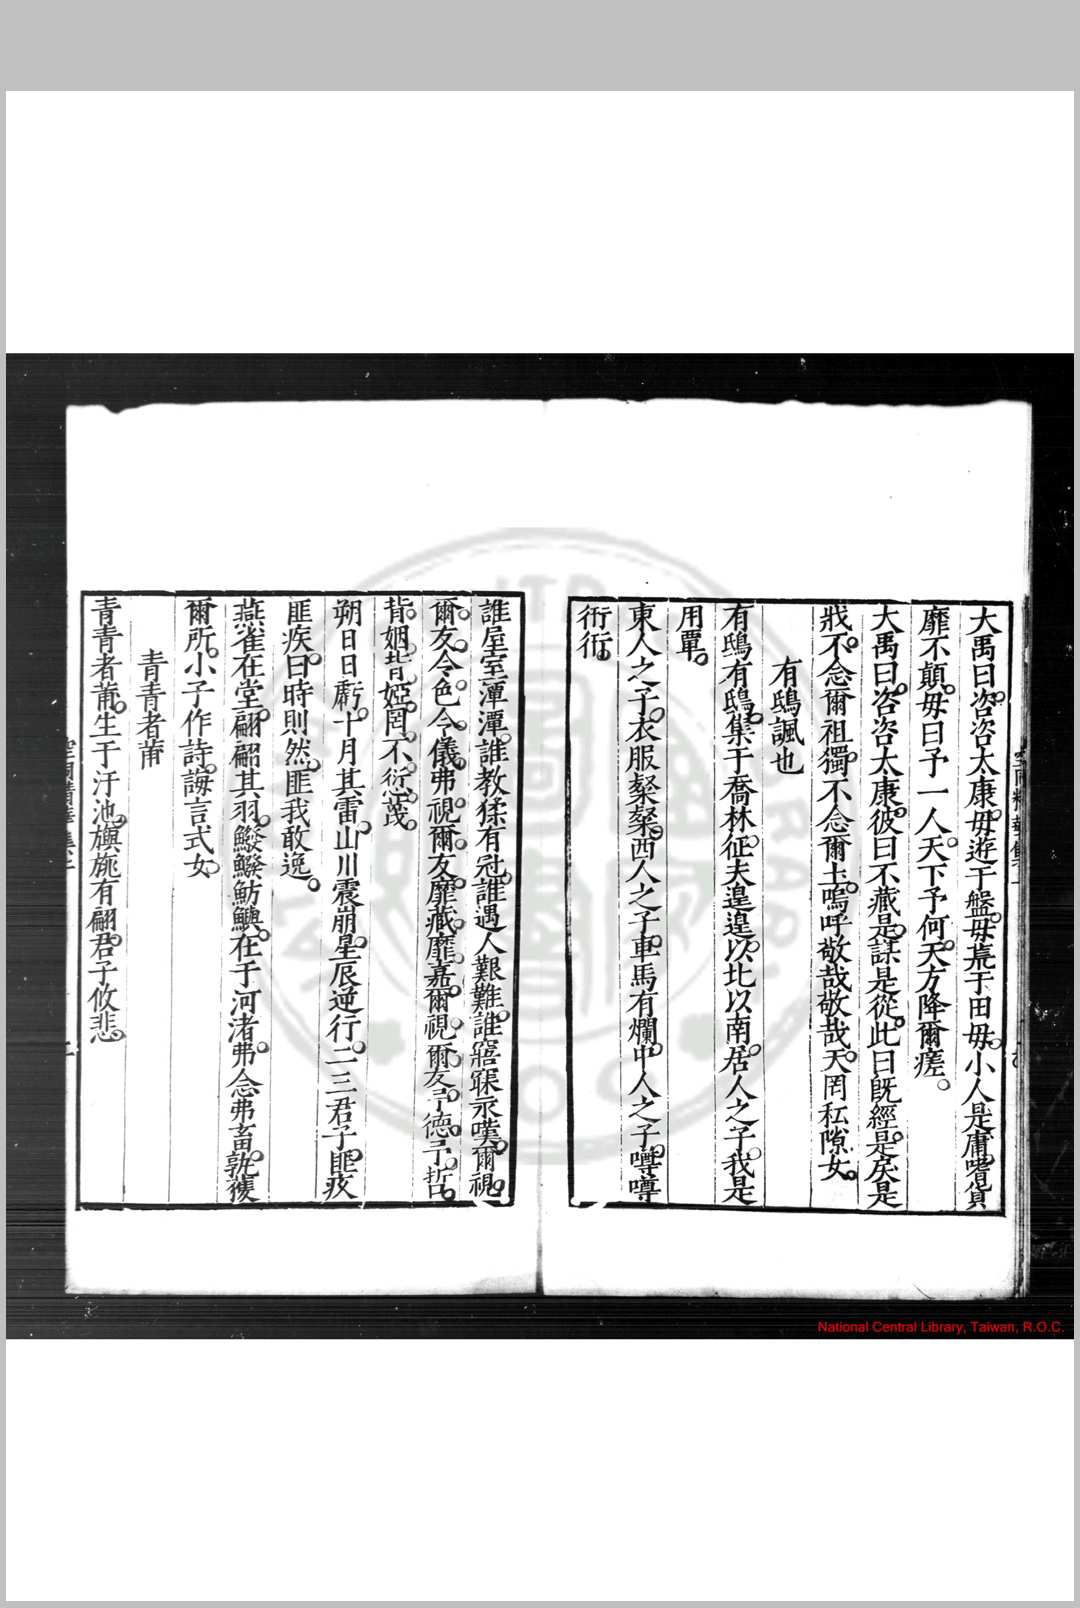 大禹曰。咨咨太康。毋遊于盤。毋荒于田。毋小人是庸。嗜貨
靡不顛。毋曰予一人。天下予何。天方降爾瘥。
大禹曰。咨咨太康。彼曰不藏。是謀是從。此曰旣經。是戾是
戕。不念爾祖。獨不念爾土。嗚呼敬哉敬哉。天罔私隙女。
有鴟諷也
有鴟有鴟。集于喬林。征夫遑遑。以北以南。居人之子。我是
用覃。
東人之子。衣服粲粲。西人之子。車馬有爛。中人之子。噂噂
衎衎。
誰屋室潭潭。誰教猱有冠。誰遇人艱難。誰寤寐永嘆。爾視
爾友。令色令儀。弗視爾友。靡臧靡嘉。爾視爾友。予德予哲。
背姻背婭。罔不愆茂。
朔日日虧。十月其雷。山川震崩。星辰逆行。二三君子。匪疚
匪疾。曰時則然。匪我敢逸。
燕雀在堂。翩翩其羽。鱍鱍魴鱮。在于河渚。弗念弗畜。孰獲
爾所。小子作詩。誨言式女。
青青者莆
青青者莆。生于汙池。旟旐有翩。君子攸悲。
National Central Library, Taiwan, R.O.C.